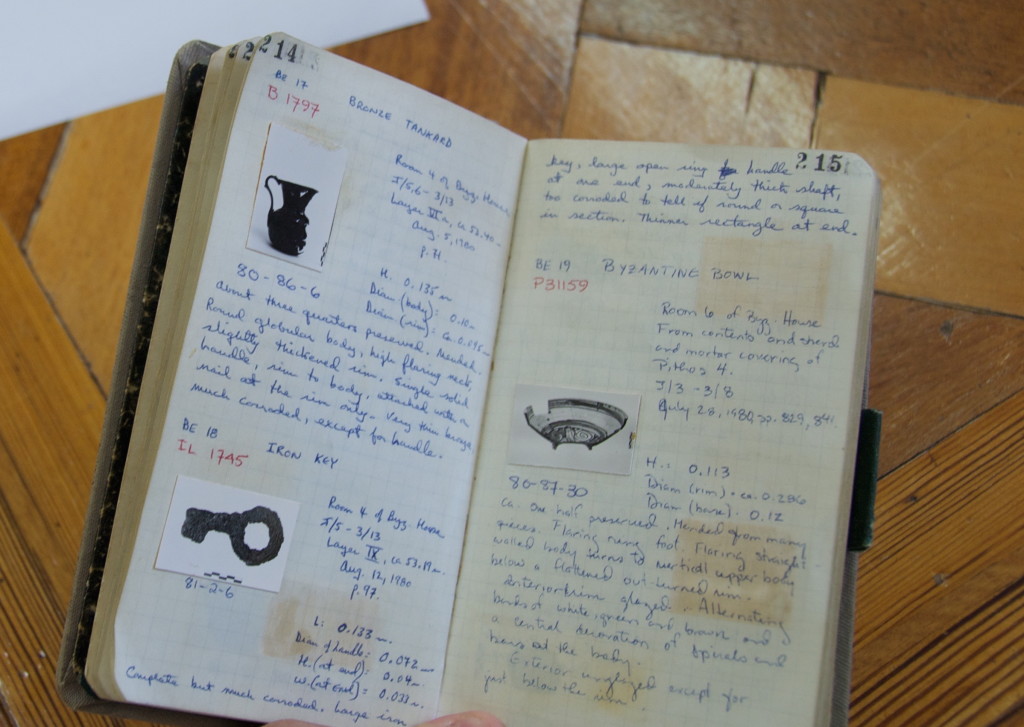 214
BE 17
B 1797
BRONZE TANKARD
Room 4 of Byz. House
J/5,6 - 3/13
Layer
Aug. 5, 1980
p. 71.
80-86-6
H. 0.135 m
Diam (body): 0.10
Diam (rim): ca. 0.095
About three quarters preserved. Mended.
Round globular body, high flaring neck,
slightly thickened rim. Single solid
handle, rim to body, attached with a
nail at the rim only. Very thin bronze
much corroded, except for handle.
BE 18
IL 1745
IRON KEY
Room 4 of Byz. House
J/5 - 3/13
Layer IX, ca 53.19 m.
Aug. 12, 1980
p. 97.
81-2-6
L: 0.133 m.
Diam of handle: 0.072 m
H. (at end): 0.04 m.
W. (at end): 0.033 m.
Complete but much corroded. Large iron
215
key, large open ring handle
at one end, moderately thick shaft,
too corroded to tell if round or square
in section. Thinner rectangle at end.
BE 19
P31159
BYZANTINE BOWL
Room 6 of Byz. House
From contents and sherd
and mortar covering of
Pithos 4.
J/3 - 3/8
July 28, 1980, pp. 829, 841.
86-87-30
H.: 0.113
Diam (rim): ca. 0.286
Diam (base): 0.12
ca. one half preserved. Mended from many
pieces. Flaring ring foot. Flaring straight
walled body turns to vertical upper body
below a flattened out-turned rim.
Interior + rim glazed. Alternating
bands of white, green and brown and
a central decoration of spirals and
bars on the body.
Exterior unglazed except for
just below the rim.